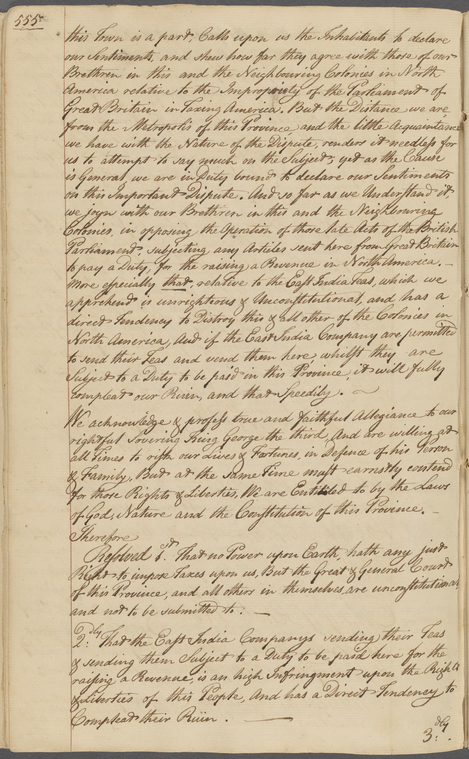 555
this Town is a part, Calls upon us the Inhabitants to declare
our Sentiments, and shew how far they agree with those of our
Brethren in this and the Neighbouring Colonies in North
America relative to the Impropriety of the Parliament of
Great Britain in Taxing America. But the Distance we are
from the Metropolis of this Province and the little Acquaintance
we have with the Nature of the Dispute, renders it needless for
us to attempt to say much on the Subject; yet as the Cause
is General, we are in Duty bound to declare our Sentiments
on this Important Dispute. And so far as we Understand it,
we joyn with our Brethren in this and the Neighbouring
Colonies, in opposing the Operation of those late Acts of the British
Parliament, subjecting any Articles sent here from Great Britain
to pay a Duty, for the raising a Revenue in North America. —
More especially that, relative to the East India Teas, which we
apprehend is unrighteous & Unconstitutional, and has a
direct Tendency to Distroy this & all other of the Colonies in
North America, And if the East India Company are permitted
to send their Teas and vend them here, whilst they are
Subject to a Duty to be paid in this Province, it will fully
compleat our Ruin, and that Speedily. ~
We acknowledge & profess true and faithful Allegiance to our
rightful Sovering King George the third, And are willing at
all Times to risk our Lives & Fortunes, in Defence of his Person
& Family, But at the same Time must earnestly contend
for those Rights & Liberties, We are Entitled to by the Laws
of God, Nature and the Constitution of this Province. —
Therefore
Resolved 1st. That no Power upon Earth, hath any just
Right to impose Taxes upon us, But the Great & General Court
of this Province, and all others in themselves are unconstitutional
and not to be submitted to: —
2.dly That the East India Companys vending their Teas
& sending them Subject to a Duty to be paid here for the
raising a Revenue, is an high Infringment upon the Rights
& Liberties of this People, And has a Direct Tendency to
Compleat their Ruin. —
3:dly.